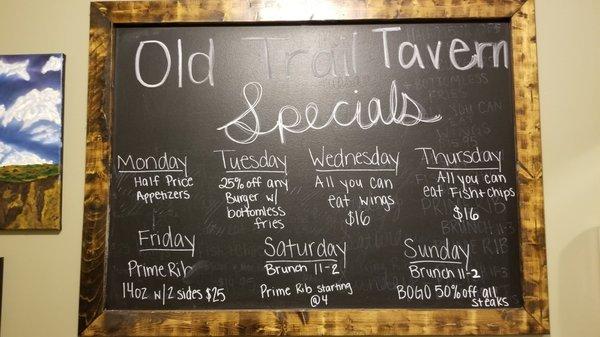 Old Trail Tavern
Specials
Monday
Half Price
Appetizers
Tuesday
25% off any
Burger w/
bottomless
fries
Wednesday
All you can
eat wings
$16
Thursday
All you can
eat Fish + chips
$16
Friday
Prime Rib
14oz w/2 sides $25
Saturday
Brunch 11-2
Prime Rib starting
@4
Sunday
Brunch 11-2
BOGO 50% off all
steaks